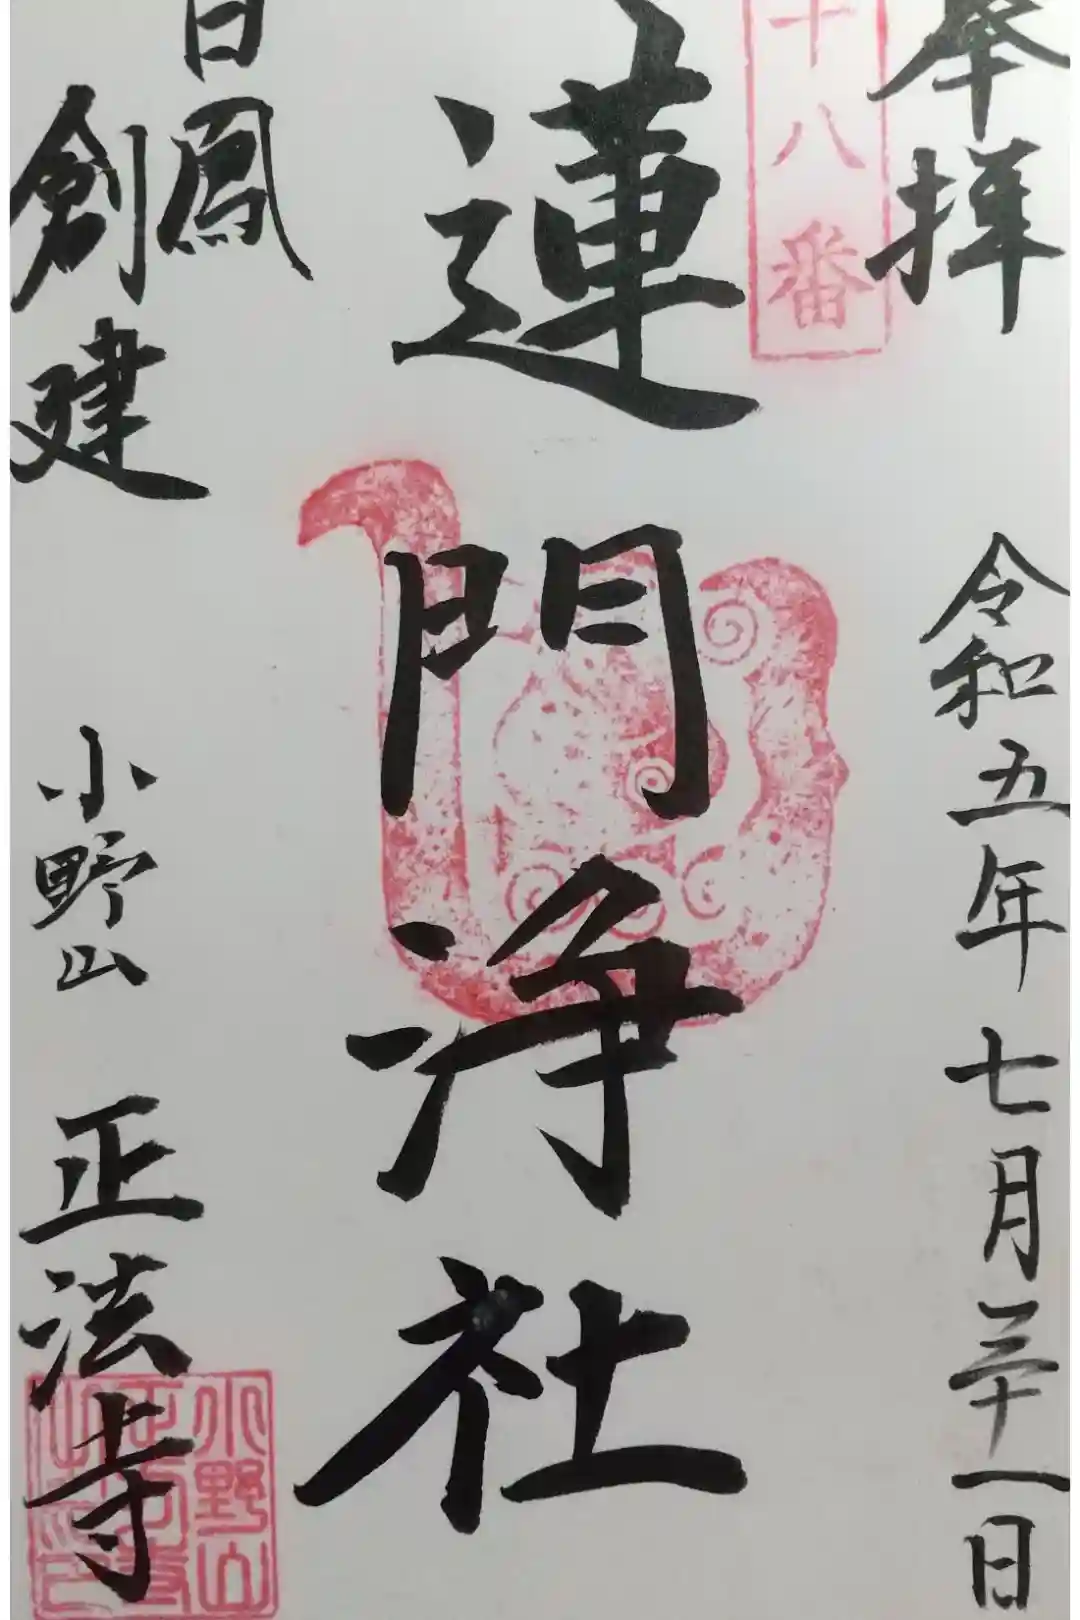 奉拝
令和五年七月三十一日
十八番
蓮門浄社
白鳳
創建
小野山 正法寺
小野山